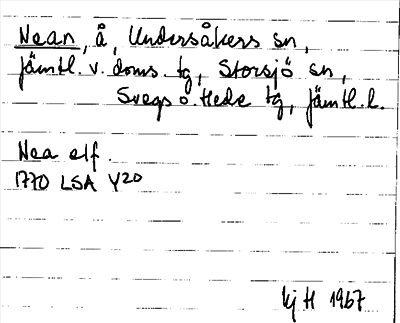 Nean, å, Undersåkers sn,
Jämtl. v. doms. tg, Storsjö sn,
Svegs o. Hede tg, Jämtl. l.
Nea elf.
1770 LSA Y20
kj H 1967